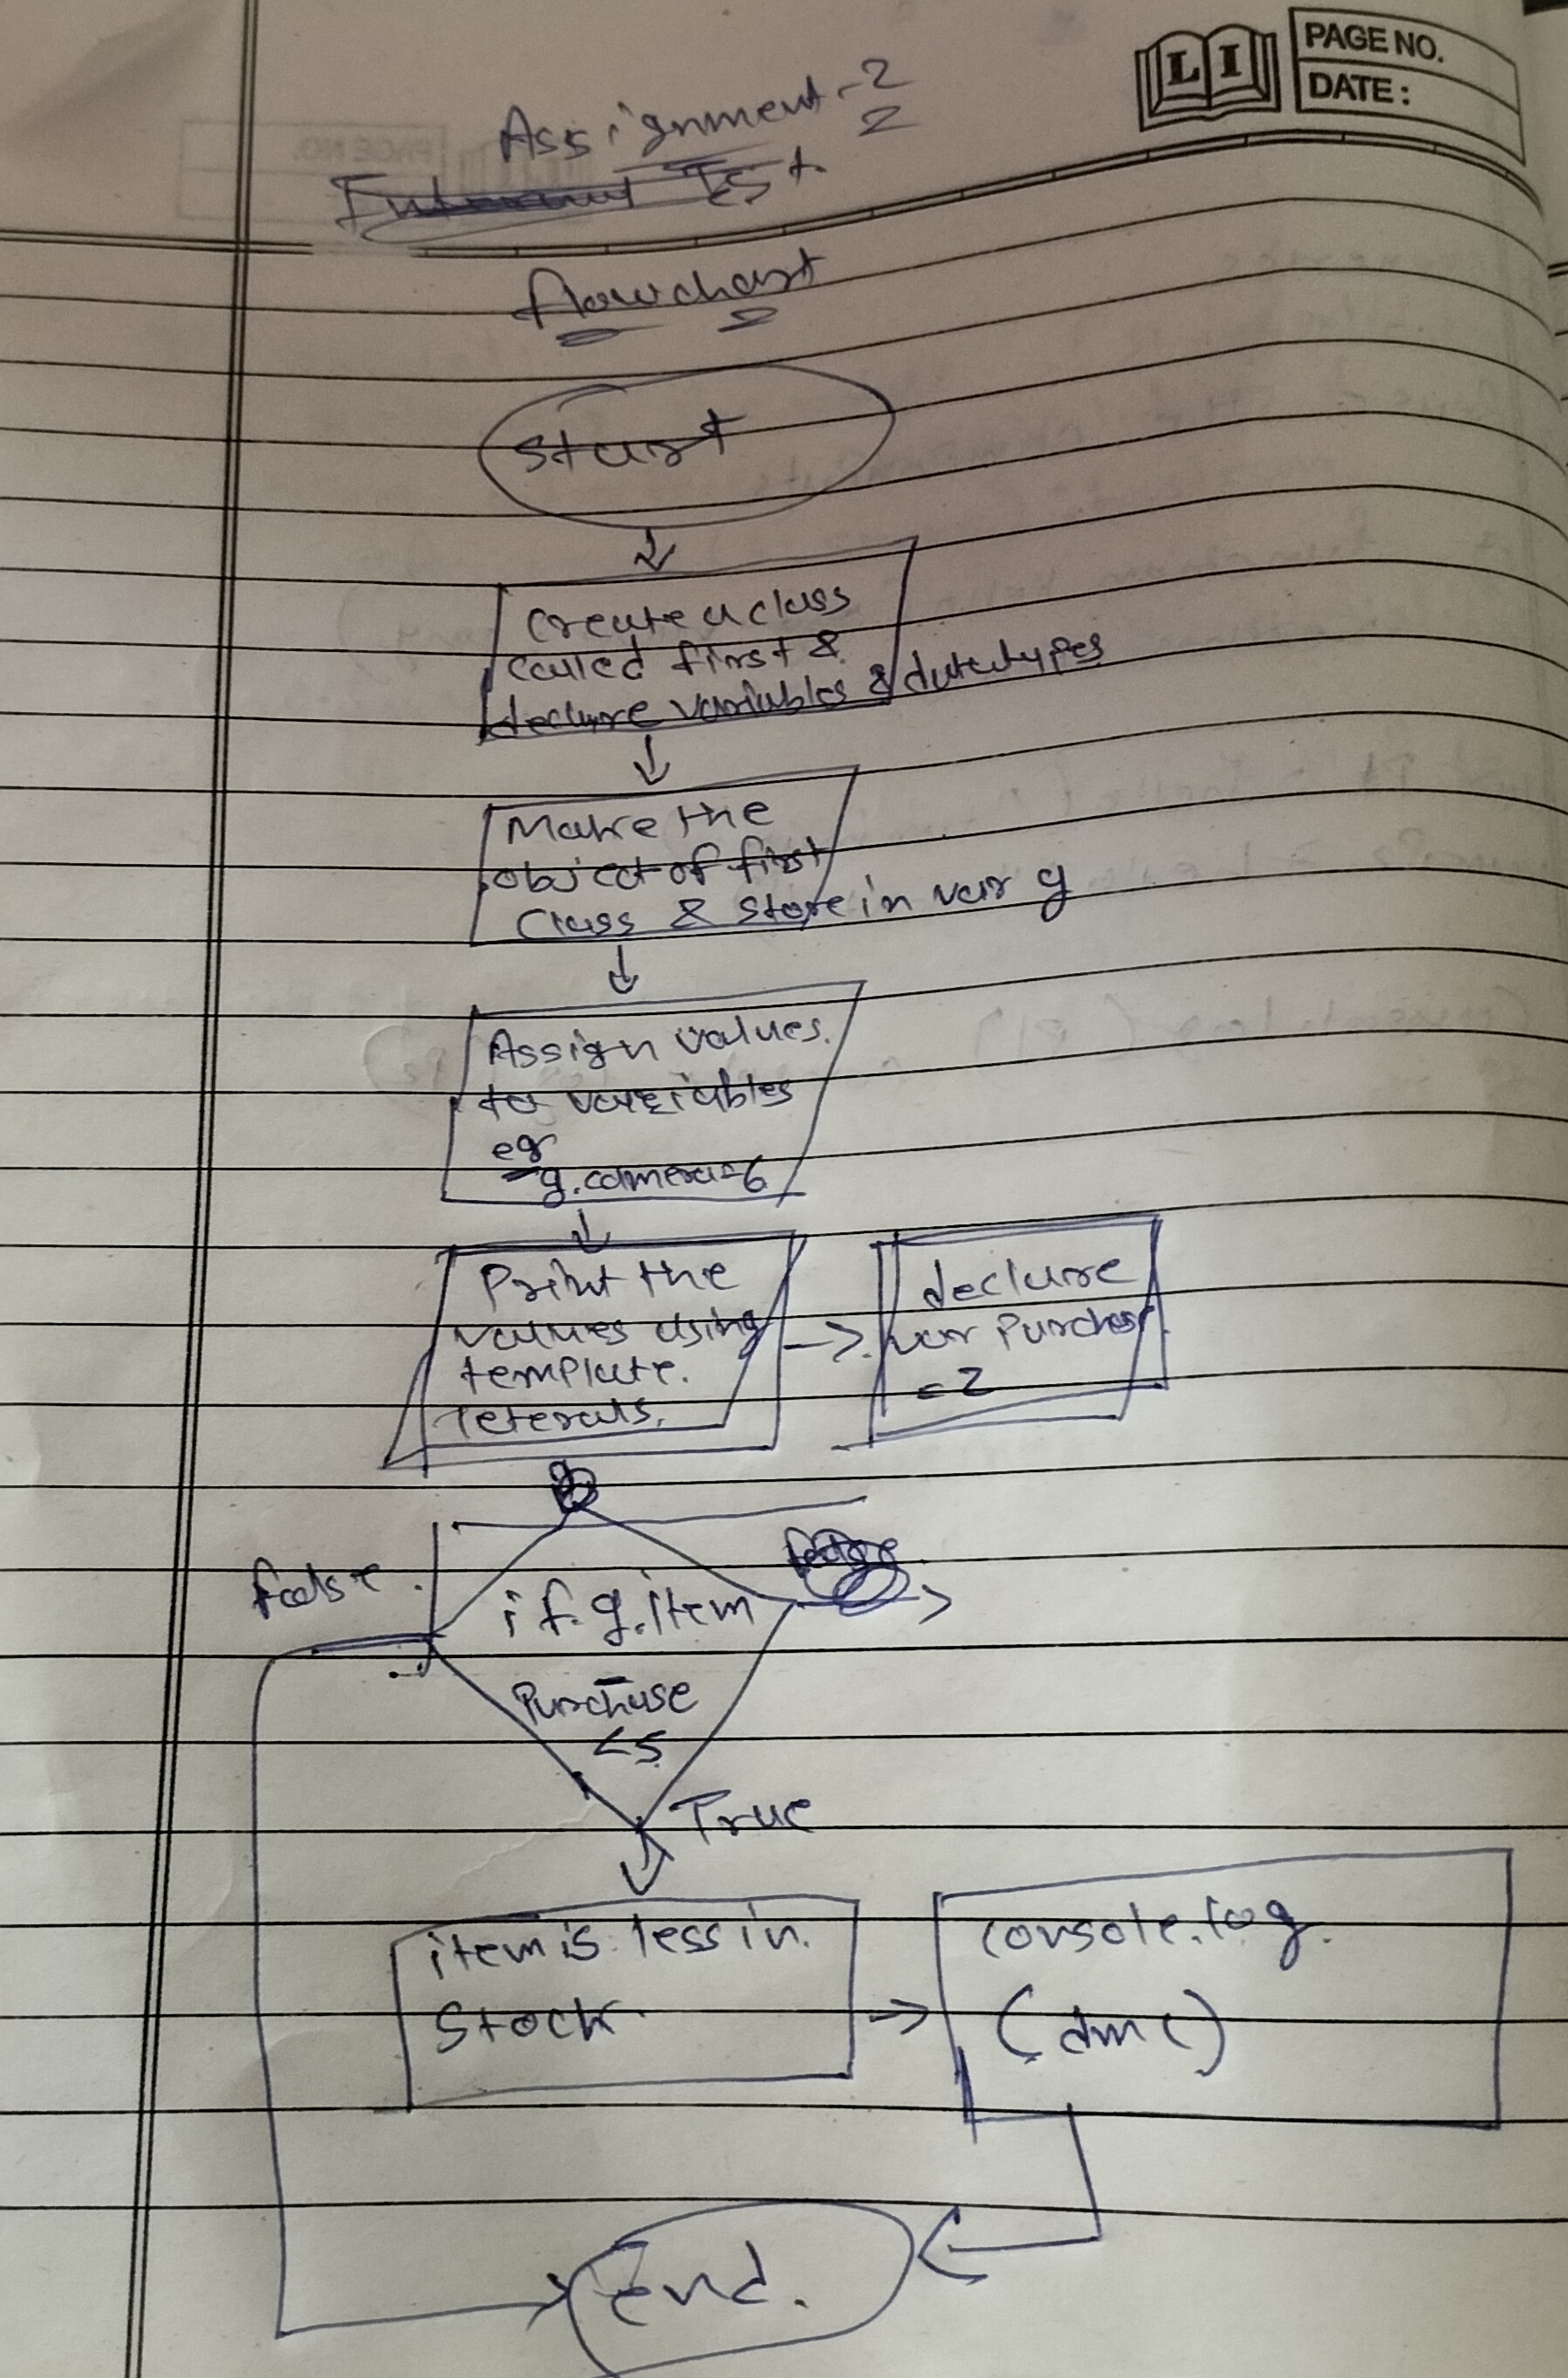 LI
PAGE NO.
DATE:
Assignment-2
2
Test.
flowchart
Start
Create a class
called first &
declare variables & datatypes
Make the
object of first
Class & store in var g
Assign values.
to variables
eg
g.camera=6
Print the
values using
template.
leterals.
declare
var Purchase
=2
false.
if g.item
-
Purchase
<5
True
item is less in.
Stock.
console.log.
(
)
End.